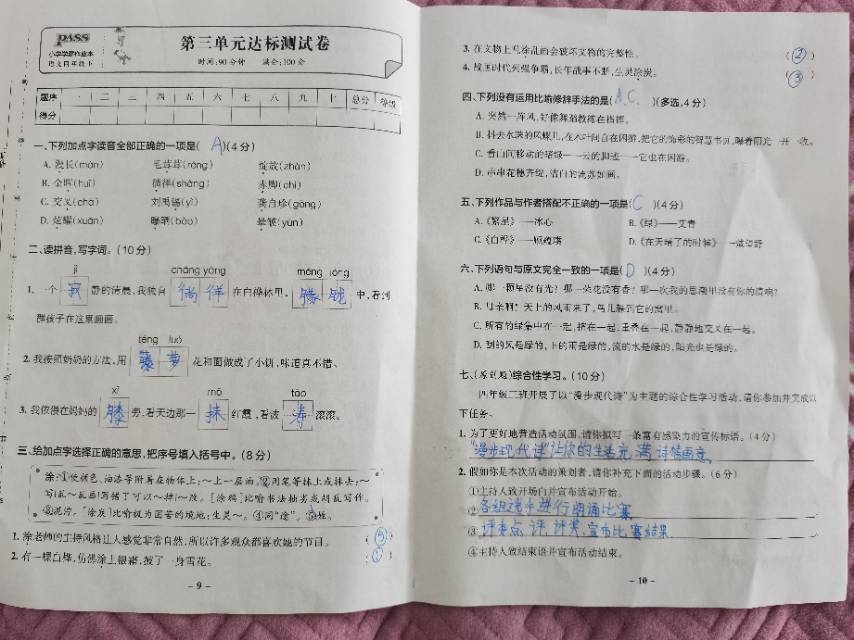 PASS
小学学霸作业本
语文四年级下
第三单元达标测试卷
时间:90分钟 满分:100分
题序 一 二 三 四 五 六 七 八 九 十 总分 等级
得分
一、下列加点字读音全部正确的一项是( A )(4分)
A. 漫长(màn) 毛茸茸(róng) 绽放(zhàn)
B. 余晖(huī) 徜徉(shàng) 赤脚(chì)
C. 交叉(cha) 刘禹锡(yī) 龚自珍(gōng)
D. 炫耀(xuàn) 曝晒(bào) 晕皱(yùn)
二、读拼音,写字词。(10分)
jì cháng yáng méng lóng
1. 一个 寂 静的清晨,我独自 徜徉 在白桦林里, 朦胧 中,看到
群孩子在这里画画。
téng luó
2. 我按照奶奶的方法,用 藤萝 花和面做成了小饼,味道真不错。
xī mǒ tāo
3. 我依偎在妈妈的 膝 旁,看天边那一 抹 红霞,看波 涛 滚滚。
三、给加点字选择正确的意思,把序号填入括号中。(8分)
涂:①使颜色、油漆等附着在物体上:~上一层油。②用笔等抹上或抹去:~
写|乱~乱画|写错了可以~掉|~改。[涂鸦]比喻书法拙劣或胡乱写作。
③泥污。[涂炭]比喻极为困苦的境地:生灵~。④同“途”。⑤姓。
1. 涂老师的主持风格让人感觉非常自然,所以许多观众都喜欢她的节目。 ( ⑤ )
2. 有一棵白桦,仿佛涂上银霜,披了一身雪花。 ( ① )
- 9 -
3. 在文物上乱涂乱画会破坏文物的完整性。 ( ② )
4. 战国时代列强争霸,长年战事不断,生灵涂炭。 ( ③ )
四、下列没有运用比喻修辞手法的是( B、C )(多选,4分)
A. 突然一阵风,好像舞蹈教练在指挥。
B. 抖去水珠的凤蝶儿,在木叶间自在闲游,把它的饰彩的智慧书页,曝着阳光一开一收。
C. 看山间移动的暗绿——云的脚迹——它也在闲游。
D. 串串花穗齐绽,洁白的流苏如画。
五、下列作品与作者搭配不正确的一项是( C )(4分)
A.《繁星》——冰心 B.《绿》——艾青
C.《白桦》——顾城 D.《在天晴了的时候》——戴望舒
六、下列语句与原文完全一致的一项是( D )(4分)
A. 哪一颗星没有光?哪一朵花没有香?哪一次我的思潮里没有你的清响?
B. 母亲啊!天上的风雨来了,鸟儿躲到它的窝里。
C. 所有的绿集中在一起,挤在一起,重叠在一起,静静地交叉在一起。
D. 刮的风是绿的,下的雨是绿的,流的水是绿的,阳光也是绿的。
七、(原创题)综合性学习。(10分)
四年级二班开展了以“漫步现代诗”为主题的综合性学习活动,请你参加并完成以
下任务。
1. 为了更好地营造活动氛围,请你拟写一条富有感染力的宣传标语。(4分)
“漫步现代诗”让你的生活充满诗情画意。
2. 假如你是本次活动的策划者,请你补充下面的活动步骤。(6分)
①主持人致开场白并宣布活动开始。
② 各组选手进行朗诵比赛
③ 评委点评、评奖、宣布比赛结果
④主持人致结束语并宣布活动结束。
- 10 -